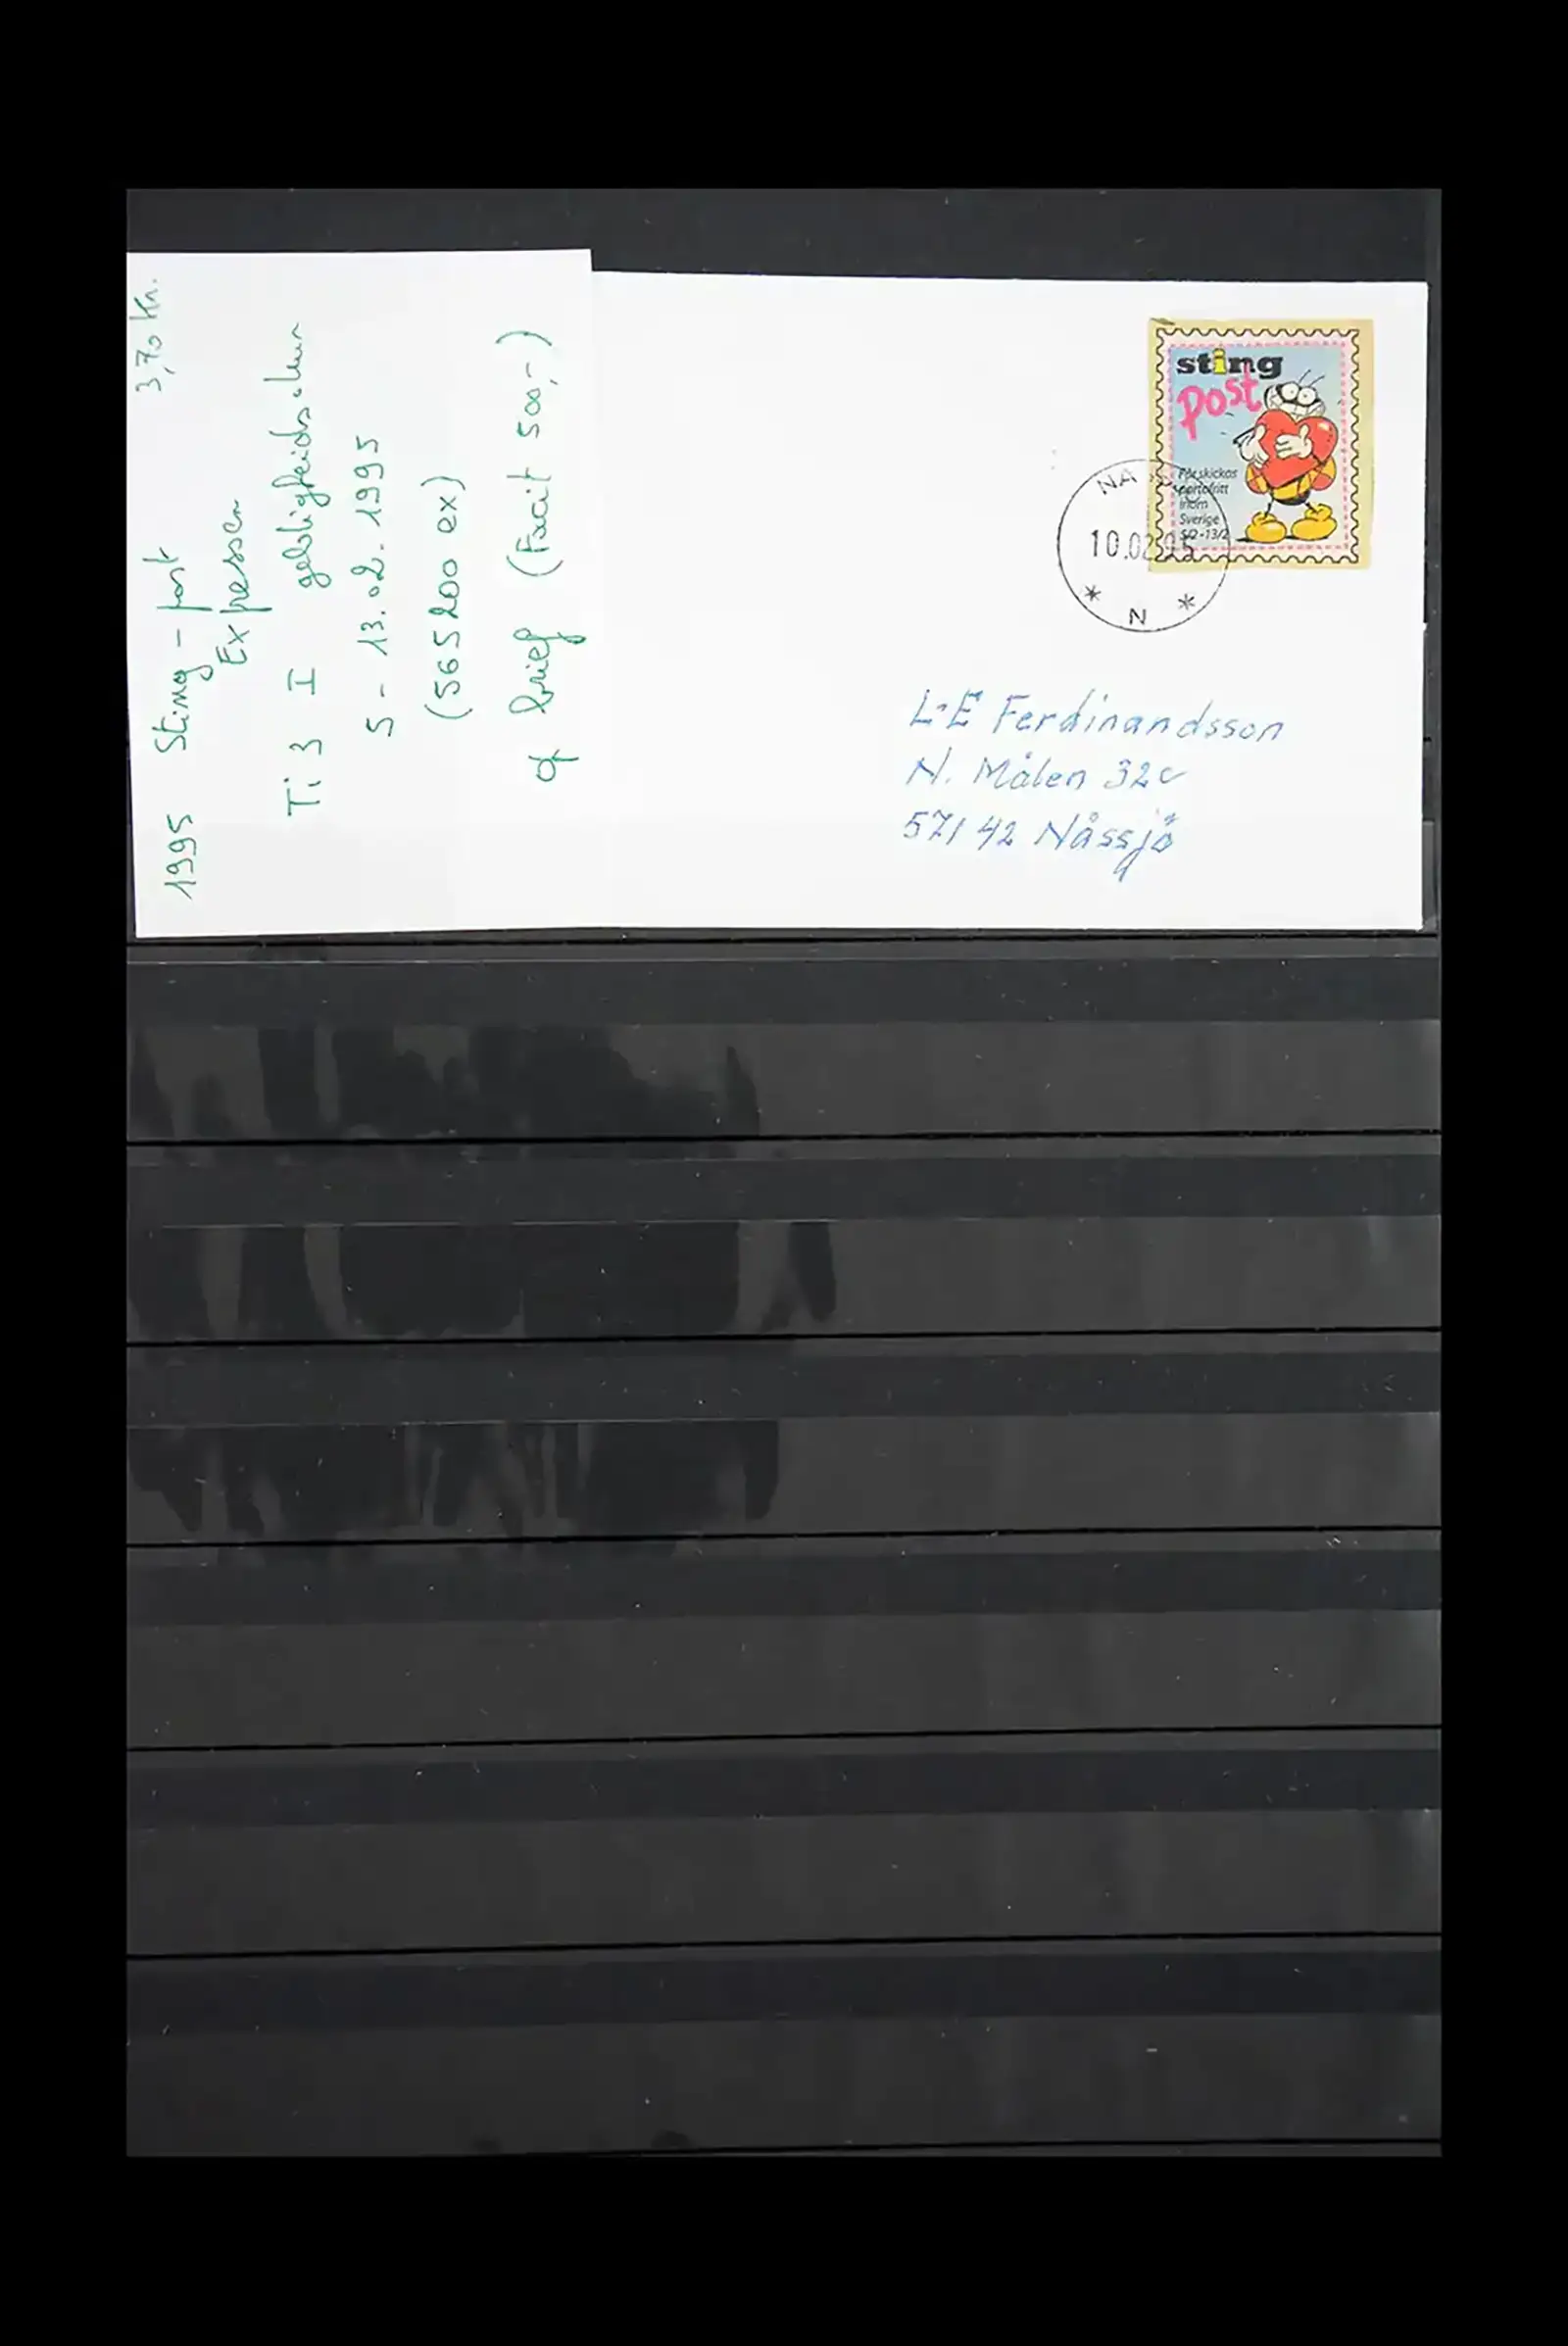 1995 Sting-post 3,70 Kr.
Expressen
Ti 3 I geldigheidsduur
5 - 13.02.1995
(565200 ex)
of brief (Facit 500,-)
sting
post
Får skickas
portofritt
inom
Sverige
5/2-13/2
NÄ
10.02.95
* N *
L-E Ferdinandsson
N. Målen 32c
571 42 Nässjö